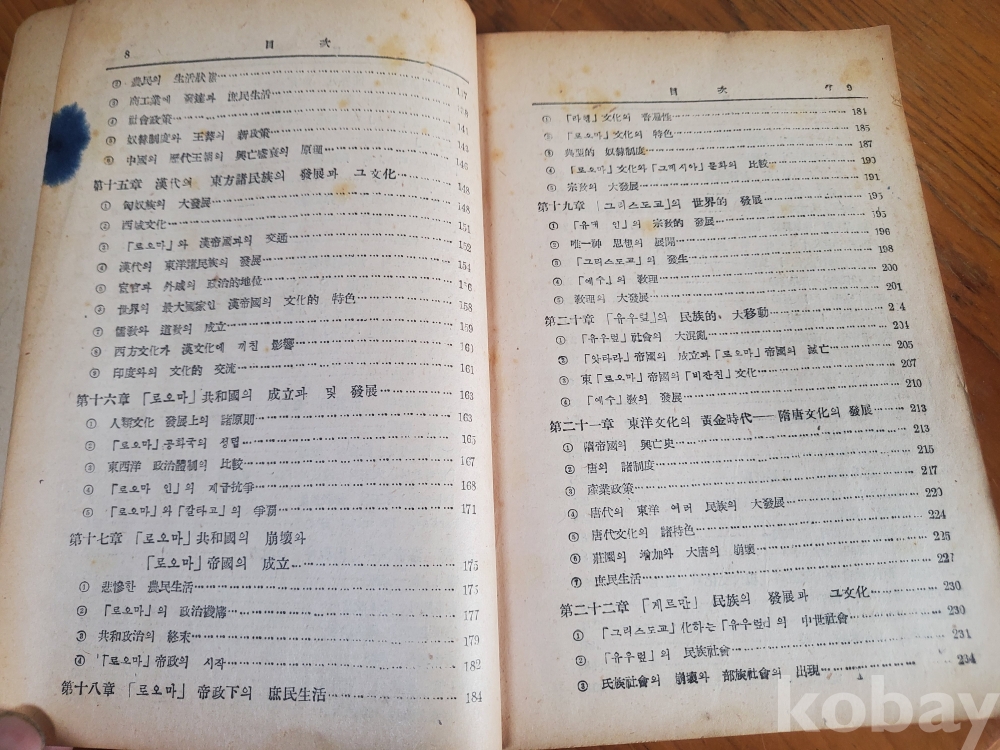 8 目次
② 農民의 生活狀態 137
③ 商工業에 發達과 庶民生活
④ 社會政策 141
⑤ 奴隸制度와 王莽의 新政策
⑥ 中國의 歷代王朝의 興亡盛衰의 原理 146
第十五章 漢代의 東方諸民族의 發展과 그文化 148
① 匈奴族의 大發展 148
② 西域文化 151
③ 「로오마」와 漢帝國과의 交通 152
④ 漢代의 東洋諸民族의 發展 154
⑤ 宦官과 外戚의 政治的地位 156
⑥ 世界의 最大國家인 漢帝國의 文化的 特色 158
⑦ 儒敎와 道敎의 成立 159
⑧ 西方文化가 漢文化에 끼친 影響 160
⑨ 印度와의 文化的 交流 161
第十六章 「로오마」共和國의 成立과 및 發展 163
① 人類文化 發展上의 諸原則 163
② 「로오마」공화국의 성립 165
③ 東西洋 政治體制의 比較 167
④ 「로오마 인」의 계급抗爭 168
⑤ 「로오마」와「칼타고」의 爭霸 171
第十七章 「로오마」共和國의 崩壞와
「로오마」帝國의 成立 175
① 悲慘한 農民生活 175
② 「로오마」의 政治機構 177
③ 共和政治의 終末 179
④ 「로오마」帝政의 시작 182
第十八章 「로오마」帝政下의 庶民生活 184
目次 9
① 「라텐」文化의 普遍性 184
② 「로오마」文化의 特色 185
③ 典型的 奴隸制度 187
④ 「로오마」文化와「그레시아」문화의 比較 190
⑤ 宗敎의 大發展 191
第十九章 「그리스도교」의 世界的 發展 195
① 「유태 인」의 宗敎的 發展 195
② 唯一神 思想의 展開 196
③ 「그리스도교」의 發生 198
④ 「예수」의 敎理 200
⑤ 敎理의 大發展 201
第二十章 「유우렆」의 民族的 大移動 204
① 「유우렆」社會의 大混亂 204
② 「앗타라」帝國의 成立과「로오마」帝國의 滅亡 205
③ 東「로오마」帝國의「비잔친」文化 207
④ 「예수」敎의 發展 210
第二十一章 東洋文化의 黃金時代—隋唐文化의 發展 213
① 隋帝國의 興亡史 213
② 唐의 諸制度 215
③ 産業政策 217
④ 唐代의 東洋 여러 民族의 大發展 220
⑤ 唐代文化의 諸特色 224
⑥ 莊園의 增加와 大唐의 崩壞 225
⑦ 庶民生活 227
第二十二章 「게르만」民族의 發展과 그文化 230
① 「그리스도교」化하는「유우렆」의 中世社會 230
② 「유우렆」의 民族社會 231
③ 氏族社會의 崩壞와 部族社會의 出現 234
kobay